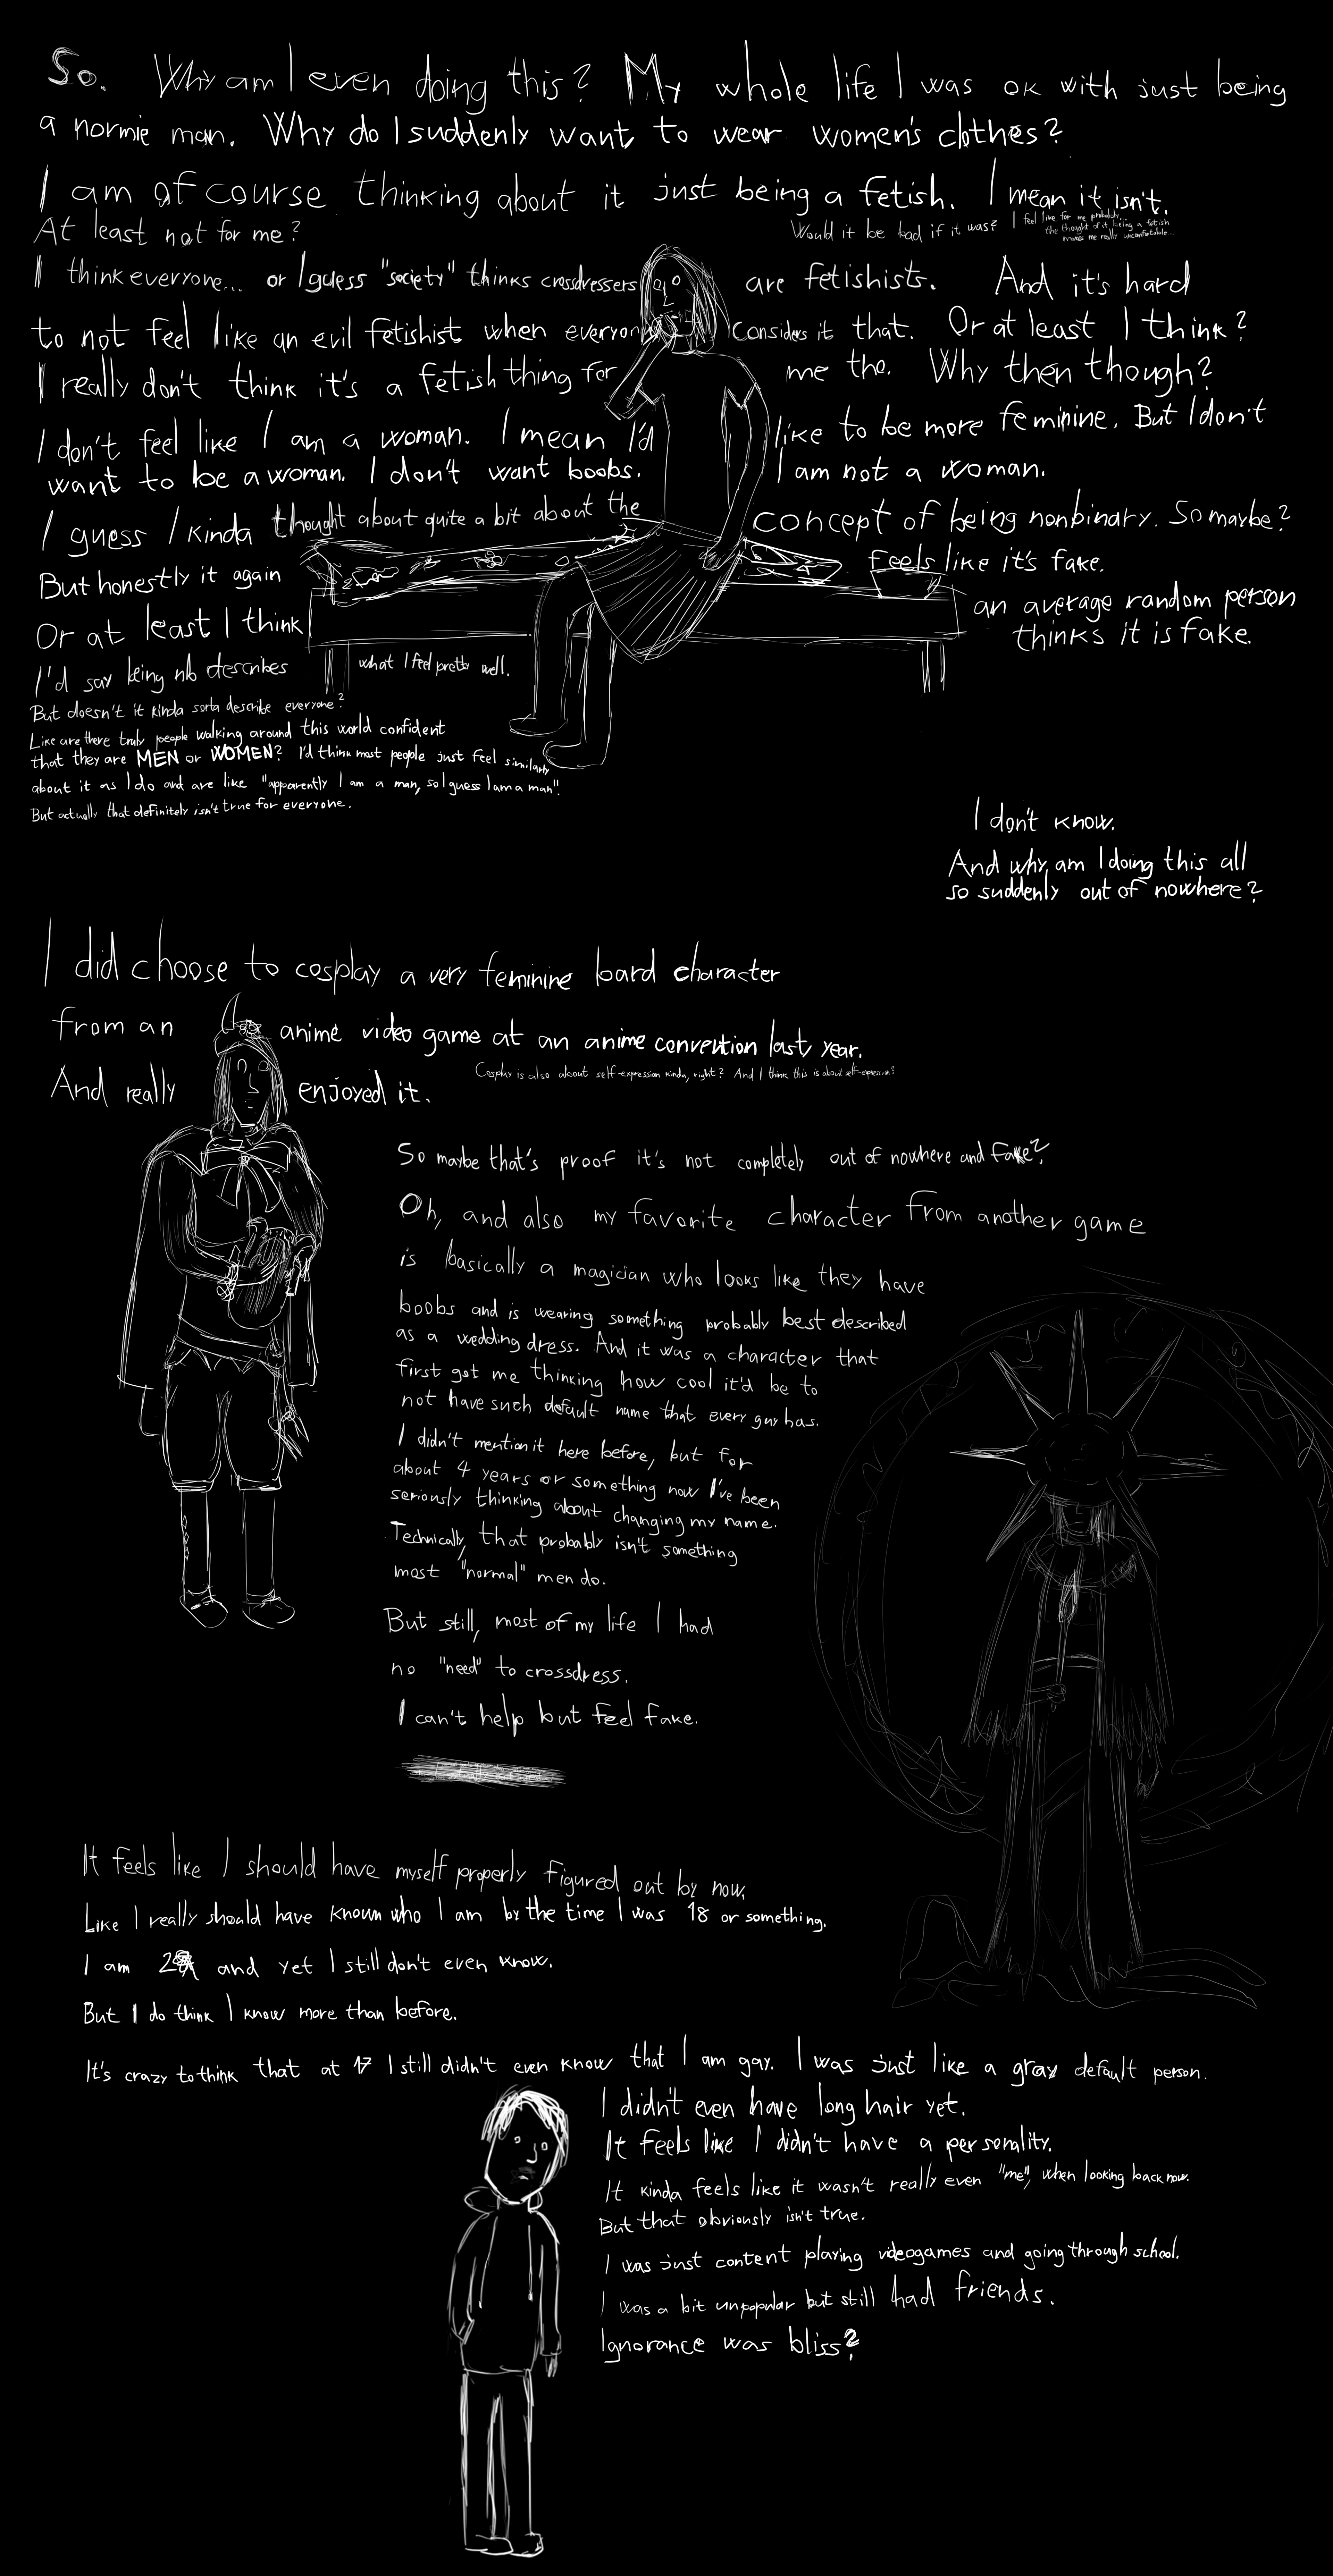 So. Why am I even doing this? My whole life I was ok with just being
a normie man. Why do I suddenly want to wear women's clothes?
I am of course thinking about it just being a fetish. I mean it isn't.
At least not for me?
Would it be bad if it was? I feel like for me probably...
the thought of it being a fetish
makes me really uncomfortable...
I think everyone... or I guess "society" thinks crossdressers are fetishists. And it's hard
to not feel like an evil fetishist when everyone considers it that. Or at least I think?
I really don't think it's a fetish thing for me tho. Why then though?
I don't feel like I am a woman. I mean I'd like to be more feminine. But I don't
want to be a woman. I don't want boobs. I am not a woman.
I guess I kinda thought about quite a bit about the concept of being nonbinary. So maybe?
But honestly it again feels like it's fake.
Or at least I think an average random person
thinks it is fake.
I'd say being nb describes what I feel pretty well.
But doesn't it kinda sorta describe everyone?
Like are there truly people walking around this world confident
that they are MEN or WOMEN? I'd think most people just feel similarly
about it as I do and are like "apparently I am a man, so I guess I am a man".
But actually that definitely isn't true for everyone.
I don't know.
And why am I doing this all
so suddenly out of nowhere?
I did choose to cosplay a very feminine bard character
from an anime video game at an anime convention last year.
And really enjoyed it.
Cosplay is also about self-expression kinda, right? And I think this is about self-expression?
So maybe that's proof it's not completely out of nowhere and fake?
Oh, and also my favorite character from another game
is basically a magician who looks like they have
boobs and is wearing something probably best described
as a wedding dress. And it was a character that
first got me thinking how cool it'd be to
not have such default name that every guy has.
I didn't mention it here before, but for
about 4 years or something now I've been
seriously thinking about changing my name.
Technically, that probably isn't something
most "normal" men do.
But still, most of my life I had
no "need" to crossdress.
I can't help but feel fake.
It feels like I should have myself properly figured out by now.
Like I really should have known who I am by the time I was 18 or something.
I am 2 and yet I still don't even know.
But I do think I know more than before.
It's crazy to think that at 17 I still didn't even know that I am gay. I was just like a gray default person.
I didn't even have long hair yet.
It feels like I didn't have a personality.
It kinda feels like it wasn't really even "me", when looking back now.
But that obviously isn't true.
I was just content playing videogames and going through school.
I was a bit unpopular but still had friends.
Ignorance was bliss?